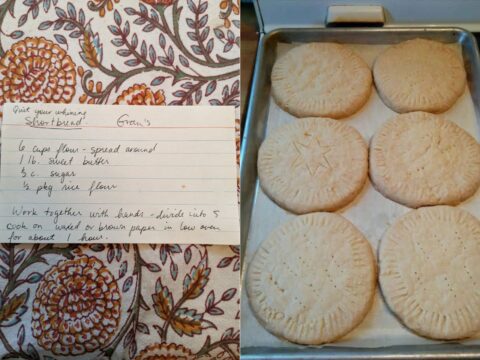 Quit your whining
Shortbread. Gran's
6 cups flour - spread around
1 lb. sweet butter
½ c. sugar
½ pkg rice flour
Work together with hands - divide into 5
cook on waxed or brown paper in low oven
for about 1 hour.